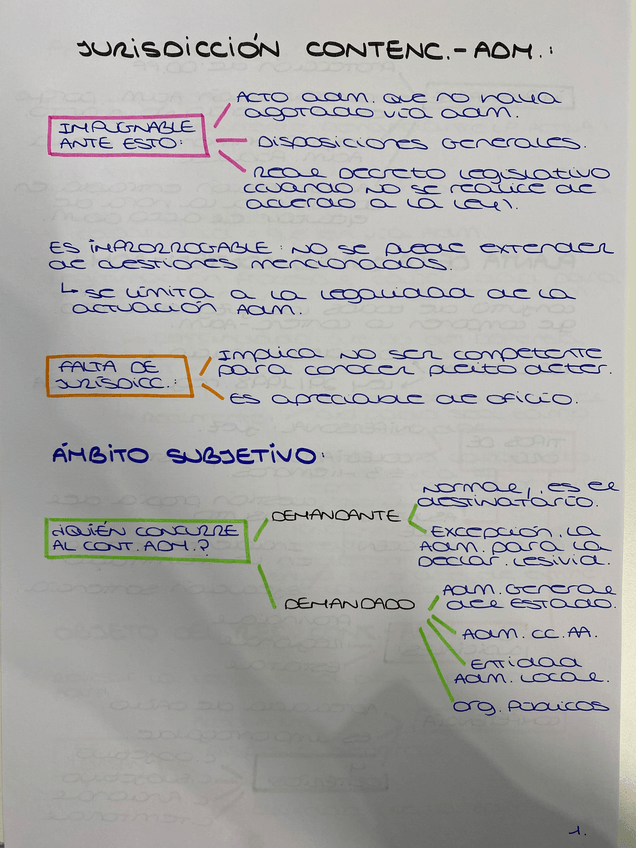 JURISDICCIÓN CONTENC.-ADM.:
IMPUGNABLE
ANTE ESTO:
ACTO adm. que no haya
agotado vía adm.
Disposiciones Generales.
Real Decreto Legislativo
(cuando no se realice de
acuerdo a la Ley).
ES IMPRORROGABLE: NO SE puede extender
de cuestiones mencionadas.
↳ SE LÍMITA A LA LEGALIDAD DE LA
ACTUACIÓN ADM.
FALTA DE
JURISDICC.:
Implica NO SER competente
para conocer pleito deter.
Es apreciable de oficio.
ÁMBITO SUBJETIVO:
¿QUIÉN CONCURRE
AL CONT. ADM.?
DEMANDANTE
Normal, es el
destinatario.
Excepción, la
Adm. para la
declar. lesivid.
DEMANDADO
Adm. General
del ESTADO.
Adm. CC.AA.
Entidad
Adm. Local.
Org. Públicos
1.